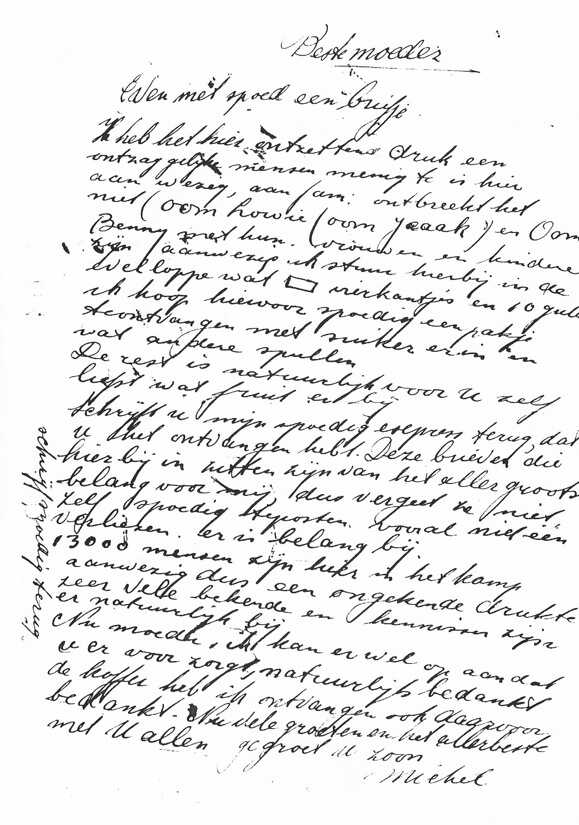 Beste moeder
Even met spoed een briefje
Ik heb het hier ontzettend druk een
ontzaggelijke mensen menigte is hier
aan wezig, aan fam. ontbreekt het
niet (oom howie (oom Jzaak) en Oom
Benny met hun vrouwen en kindere
zijn aanwezig ik stuur hierbij in de
evelloppe wat ▭ vierkantjes en 10 guld
ik hoop hiervoor spoedig een pakje
te ontvangen met suiker er in en
wat andere spullen
De rest is natuurlijk voor U zelf
liefst wat fruit er bij
Schrijft u mijn spoedig expres terug, dat
u het ontvangen hebt. Deze brieven, die
hierbij in zitten zijn van het aller groots
belang voor mij, dus vergeet ze niet
zelf spoedig te posten. vooral niet één
verliezen. er is belang bij
13000 mensen zijn hier in het kamp
aanwezig dus een ongekende drukte
zeer vele bekende en kennissen zijn
er natuurlijk bij
Nu moeder, ik kan er wel op aan dat
u er voor zorgt, natuurlijk bedankt
de koffer heb ik ontvangen ook daarvoor
bedankt. Nu vele groeten en het allerbeste
met U allen gegroet U zoon
Michel
schrijf spoedig terug